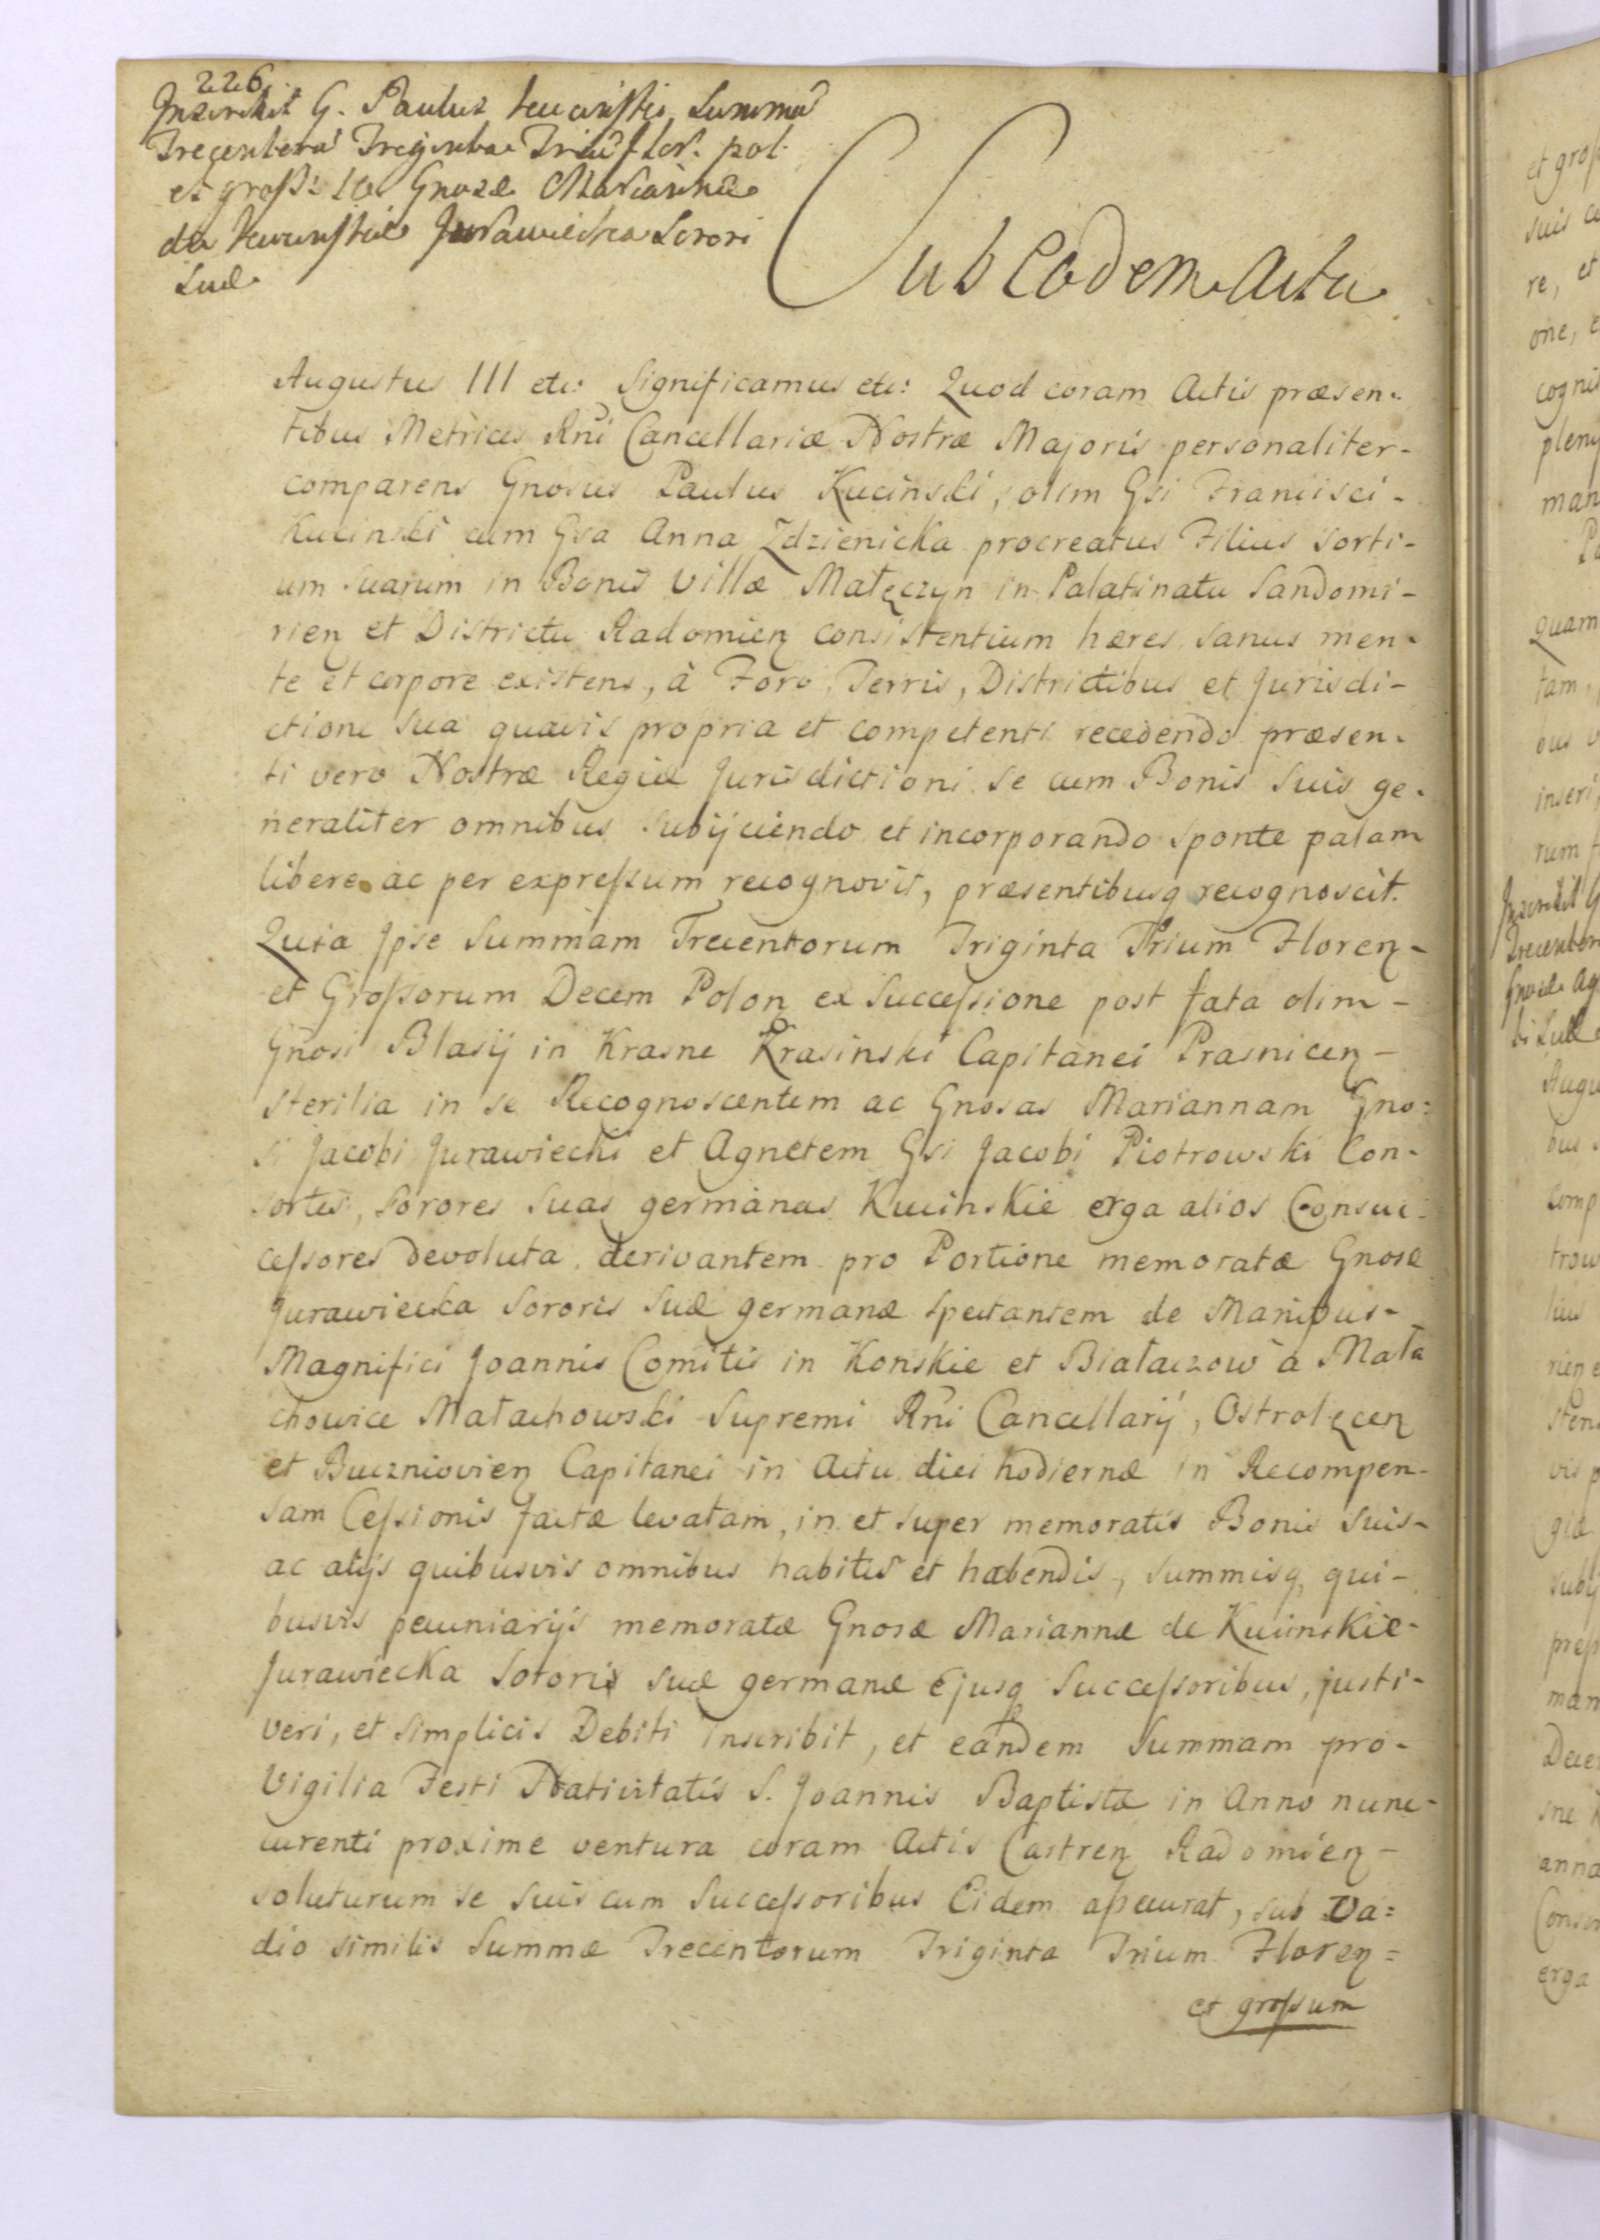 226.
Inscribit G. Paulus Kucinski Summã
Trecentorũ Triginta Triũ flor. pol.
et groß: 10. Gnosæ Mariannæ
de Kucinskie Jurawiecka Sorori
Suæ
Sub Eodem Actu
Augustus III etc: Significamus etc: Quod coram Actis præsen-
tibus Metrices Rñi Cancellariæ Nostræ Majoris personaliter-
comparens Gnosus Paulus Kucinski, olim Gsi Francisci-
Kucinski cum Gsa Anna Zdzienicka procreatus Filius Sorti-
um suarum in Bonis Villæ Małęczyn in Palatinatu Sandomi-
rien et Districtu Radomien consistentium hæres sanus men-
te et corpore existens, à Foro, Terris, Districtibus et Jurisdi-
ctione sua quavis propria et competenti recedendo præsen-
ti vero Nostræ Regiæ Jurisdictioni se cum Bonis suis ge-
neraliter omnibus subijciendo et incorporando sponte palam
libere ac per expreſsum recognovit, præsentibusq recognoscit.
Quia Ipse Summam Trecentorum Triginta Trium Floren-
et Groſsorum Decem Polon ex Succeſsione post fata olim-
Gnosi Blasij in Krasne Krasinski Capitanei Prasnicen-
sterilia in se Recognoscentem ac Gnosas Mariannam Gno:
si Jacobi Jurawiecki et Agnetem Gsi Jacobi Piotrowski Con-
sortes, Sorores suas germanas Kucinskie erga alios Consuc:
ceſsores devoluta derivantem pro Portione memoratæ Gnosæ
Jurawiecka Sororis suæ germanæ spectantem de Manibus-
Magnifici Joannis Comitis in Konskie et Białaczow à Mała
chowice Małachowski Supremi Rñi Cancellarij, Ostrolęcen
et Buczniovien Capitanei in Actu diei hodiernæ in Recompen-
sam Ceſsionis factæ levatam, in et super memoratis Bonis suis-
ac alijs quibusvis omnibus habitis et habendis, summisq, qui-
busvis pecuniarijs memoratæ Gnosæ Mariannæ de Kucinskie-
Jurawiecka Sororis suæ germanæ Ejusq Succeſsoribus, justi-
veri, et simplicis Debiti inscribit, et eandem Summam pro-
Vigilia Festi Nativitatis S. Joannis Baptistæ in Anno nunc-
curenti proxime ventura coram Actis Castren Radomien-
soluturum se suis cum Succeſsoribus Eidem aſsecurat, sub va=
dio similis Summæ Trecentorum Triginta Trium Floren=
et groſsum